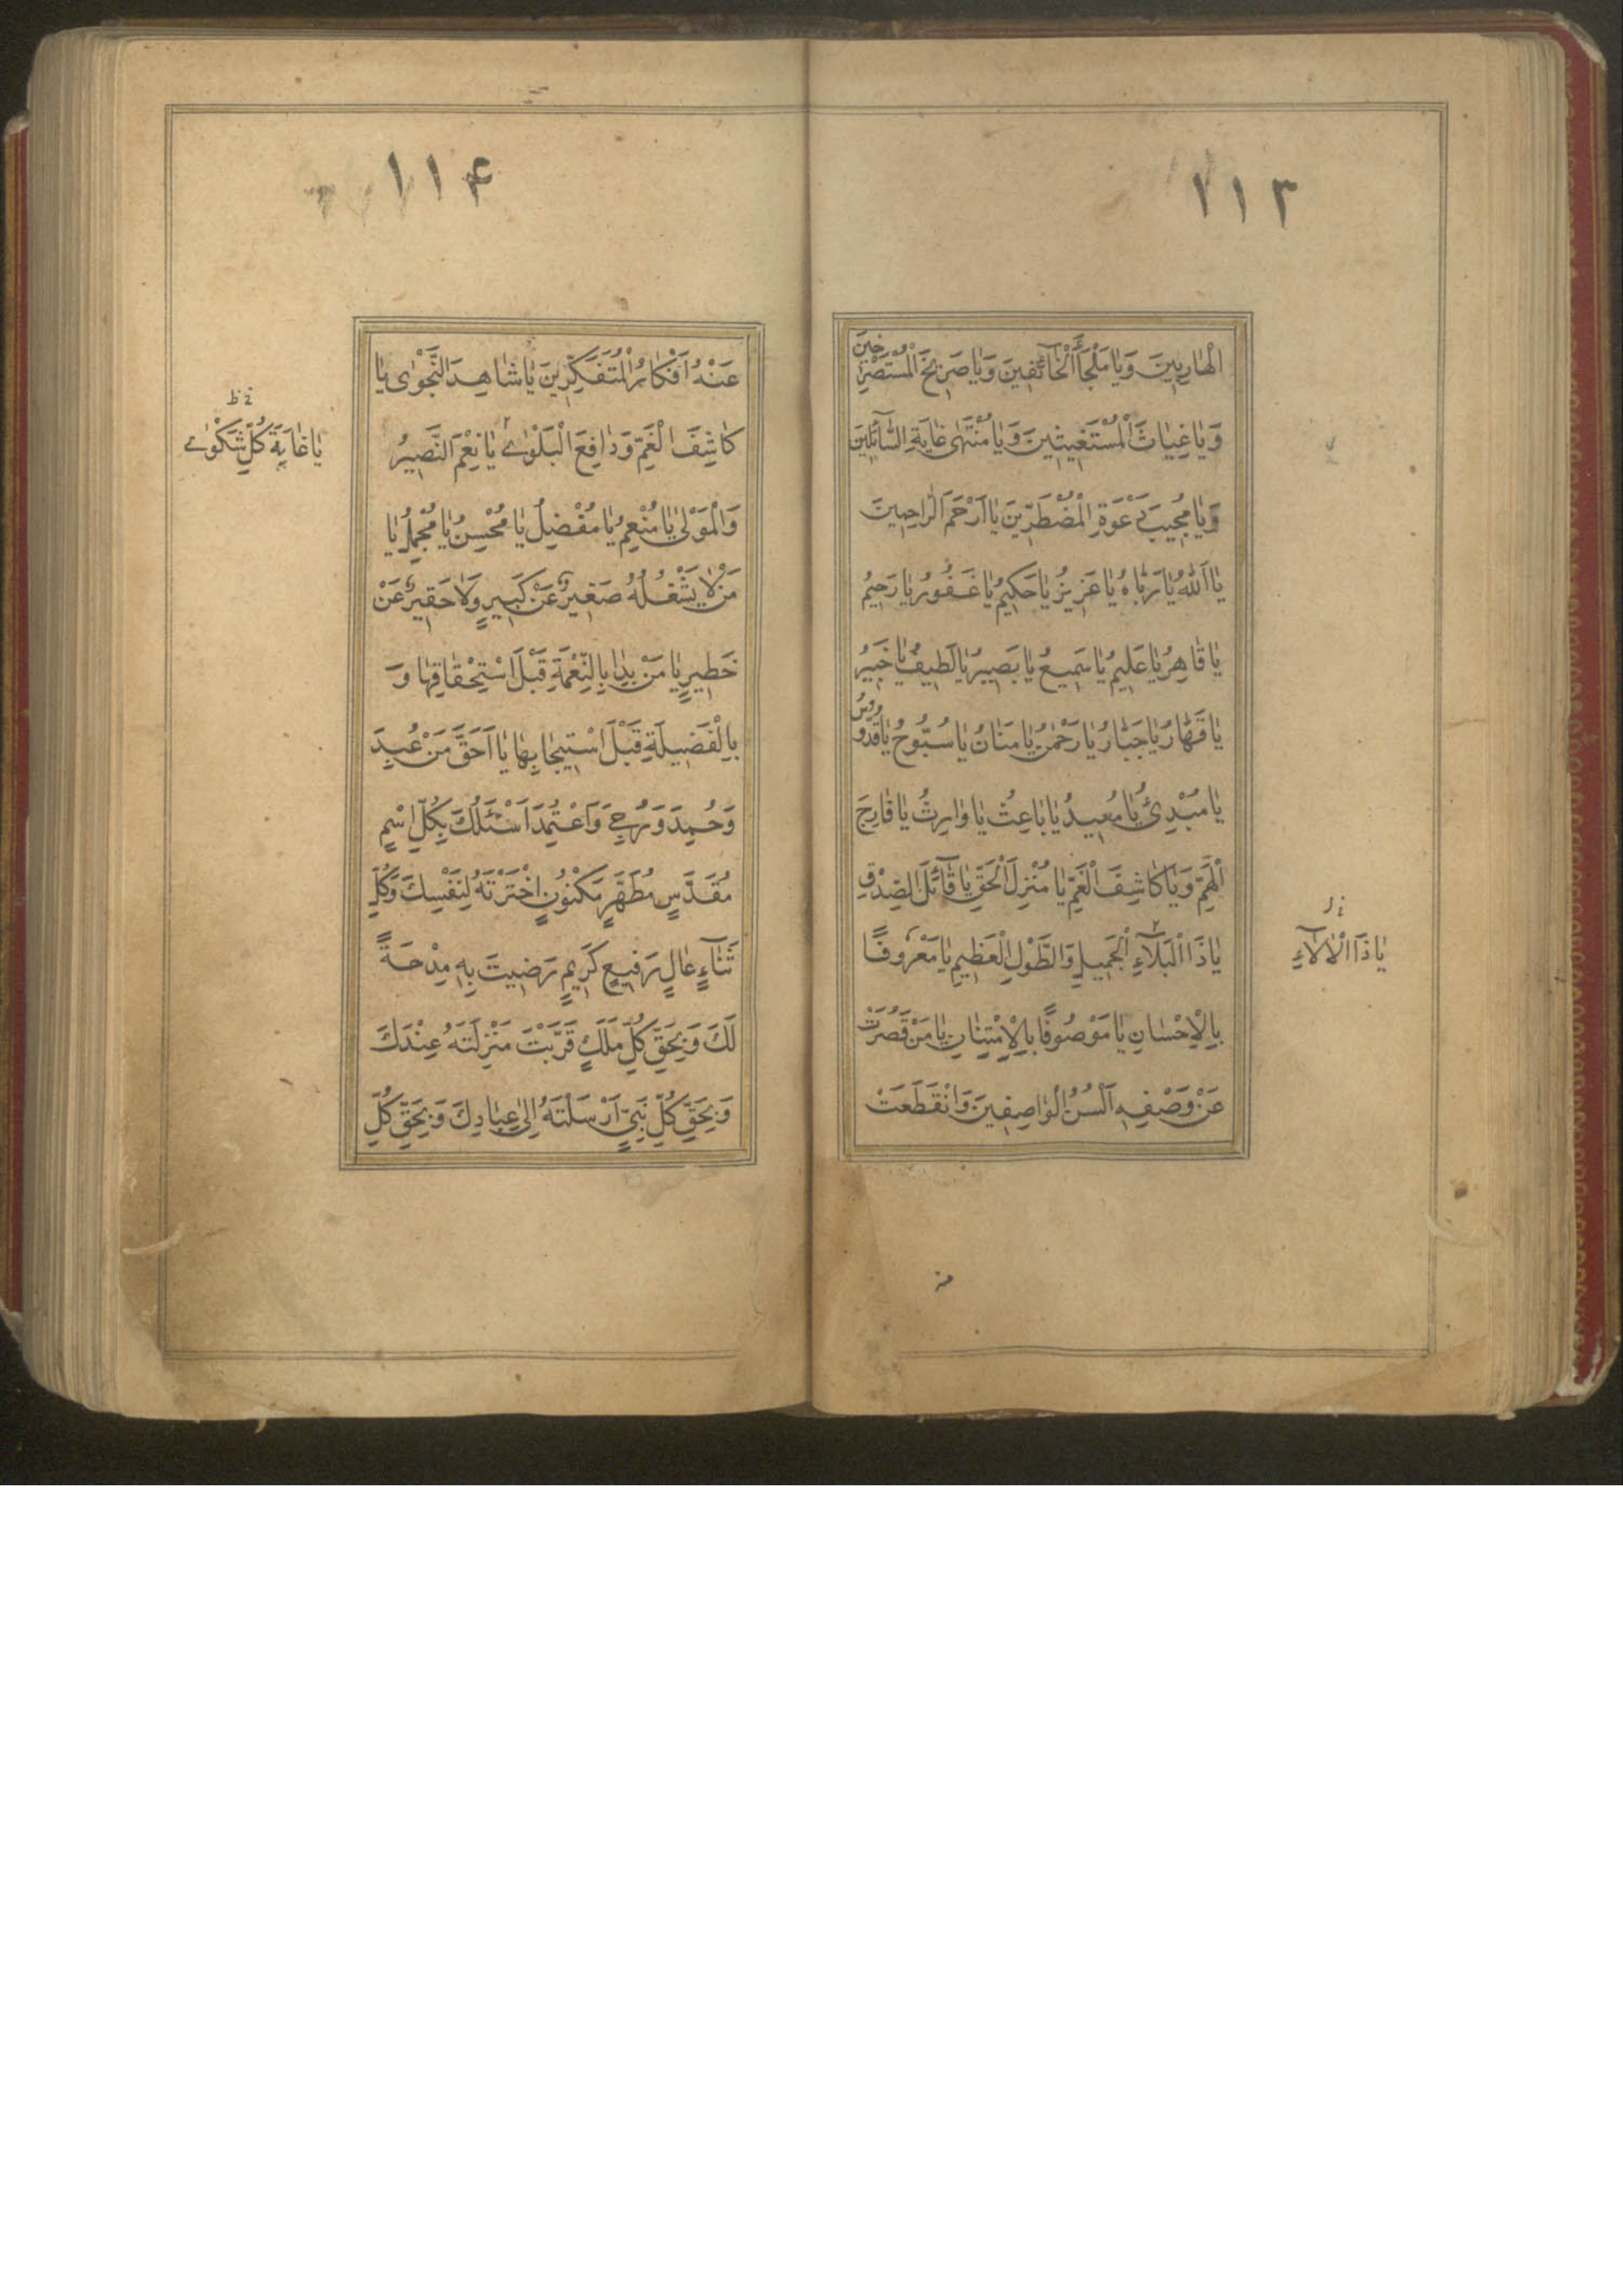 ١١٣
الْهارِبِينَ وَيا مَلْجَأَ الْخآئِفِينَ وَيا صَرِيخَ الْمُسْتَصْرِخينَ
وَيا غِياثَ الْمُسْتَغيثينَ وَيا مُنْتَهىٰ غايَةِ السّآئِلينَ
وَيا مُجيبَ دَعْوَةِ الْمُضْطَرّينَ يا اَرْحَمَ الرّاحِمينَ
يا اَللهُ يا رَبّاهُ يا عَزيزُ يا حَكيمُ يا غَفُورُ يا رَحيمُ
يا قاهِرُ يا عَليمُ يا سَميعُ يا بَصيرُ يا لَطيفُ يا خَبيرُ
يا قَهّارُ يا جَبّارُ يا رَحْمٰنُ يا مَنّانُ يا سُبُّوحُ يا قُدُّوسُ
يا مُبْدِئُ يا مُعيدُ يا باعِثُ يا وارِثُ يا فارِجَ
الْهَمِّ وَيا كاشِفَ الْغَمِّ يا مُنْزِلَ الْحَقِّ يا قآئِلَ الصِّدْقِ
يا ذَا الْبَلآءِ الْجَميلِ وَالطَّوْلِ الْعَظيمِ يا مَعْرُوفًا
خ ل
يا ذَا الْاٰلآءِ
بِالْاِحْسانِ يا مَوْصُوفًا بِالْاِمْتِنانِ يا مَنْ قَصُرَتْ
عَنْ وَصْفِهِ اَلْسُنُ الْواصِفينَ وَانْقَطَعَتْ
١١۴
عَنْهُ اَفْكارُ الْمُتَفَكِّرينَ يا شاهِدَ النَّجْوىٰ يا
كاشِفَ الْغَمِّ وَدافِعَ الْبَلْوىٰ يا نِعْمَ النَّصيرُ
يا غايَةَ كُلِّ شَكْوىٰ
وَالْمَوْلىٰ يا مُنْعِمُ يا مُفْضِلُ يا مُحْسِنُ يا مُجْمِلُ يا
مَنْ لا يَشْغَلُهُ صَغيرٌ عَنْ كَبيرٍ وَلا حَقيرٌ عَنْ
خَطيرٍ يا مَنْ بَدا بِالنِّعْمَةِ قَبْلَ اسْتِحْقاقِها وَ
بِالْفَضيلَةِ قَبْلَ اسْتيجابِها يا اَحَقَّ مَنْ عُبِدَ
وَحُمِدَ وَرُجِيَ وَاعْتُمِدَ اَسْئَلُكَ بِكُلِّ اسْمٍ
مُقَدَّسٍ مُطَهَّرٍ مَكْنُونٍ اخْتَرْتَهُ لِنَفْسِكَ وَكُلِّ
ثَنآءٍ عالٍ رَفيعٍ كَريمٍ رَضيتَ بِهِ مِدْحَةً
لَكَ وَبِحَقِّ كُلِّ مَلَكٍ قَرَّبْتَ مَنْزِلَتَهُ عِنْدَكَ
وَبِحَقِّ كُلِّ نَبِيٍّ اَرْسَلْتَهُ اِلىٰ عِبادِكَ وَبِحَقِّ كُلِّ